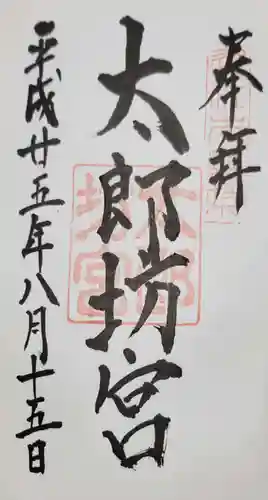 奉拝
太郎坊宮
平成廿五年八月十五日